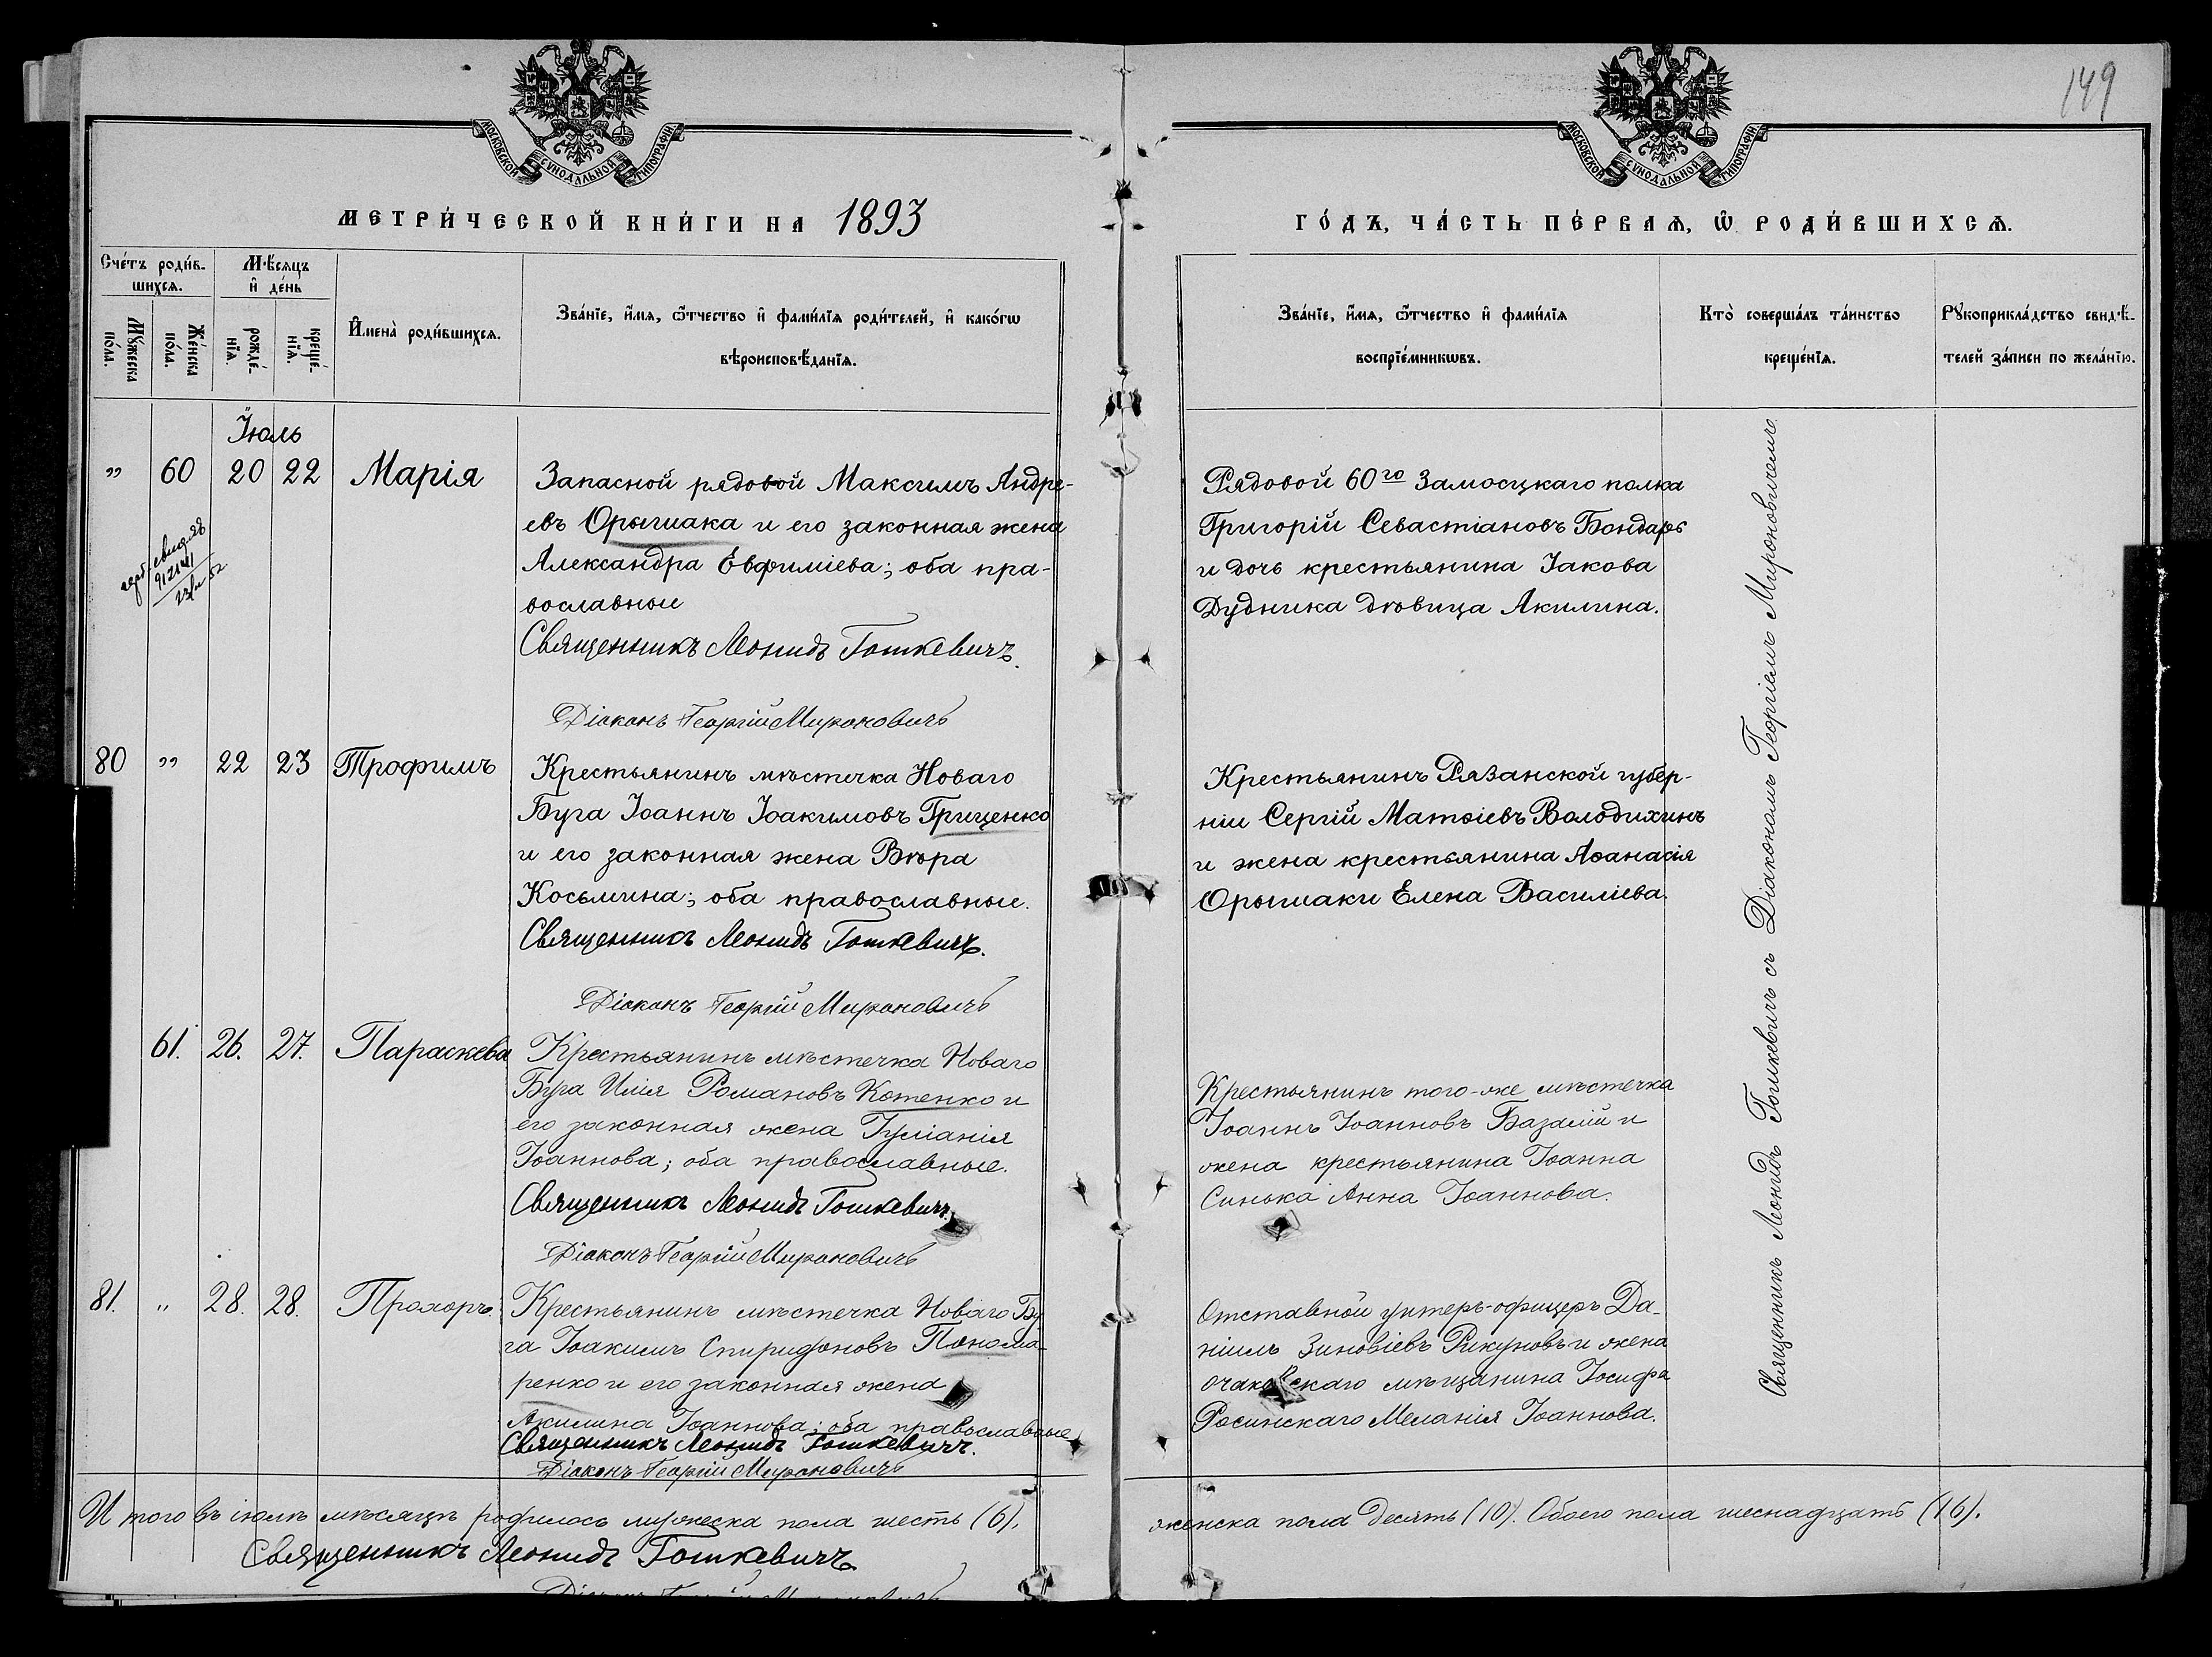 149
МОСКОВСКОЙ СѴНОДАЛЬНОЙ ТИПОГРАФІИ
МОСКОВСКОЙ СѴНОДАЛЬНОЙ ТИПОГРАФІИ
МЕТРИ́ЧЕСКОЙ КНИ́ГИ НА 1893
ГО́ДЪ, ЧА́СТЬ ПЕ́РВАѦ, Ѽ РОДИ́ВШИХСѦ.
Сче́тъ роди́в-
шихсѧ.
Мѣ́сѧцъ
и҆ де́нь
Мꙋ́жеска
по́ла.
Же́нска
по́ла.
рожде́-
нїѧ.
креще́-
нїѧ.
И҆мена̀ роди́вшихсѧ.
Зва́нїе, и҆́мѧ, ѻ҆́тчество и҆ фами́лїѧ роди́телей, и҆ како́гѡ
вѣроисповѣ́данїѧ.
Зва́нїе, и҆́мѧ, ѻ҆́тчество и҆ фами́лїѧ
воспрїе́мникѡвъ.
Кто̀ соверша́лъ та́инство
креще́нїѧ.
Рꙋкоприкла́дство свидѣ́-
телей за́писи по жела́нїю.
Іюль
" 60 20 22 Марія
Запасной рядовой Максимъ Андре-
евъ Орышака и его законная жена
Александра Евфиміева; оба пра-
вославные
Священникъ Леонидъ Гошкевичъ.
Діаконъ Георгій Мироновичъ
Рядовой 60го Замосцкаго полка
Григорій Севастіановъ Бондарь
и дочь крестьянина Іакова
Дудника дѣвица Акилина.
912141
80 " 22 23 Трофимъ
Крестьянинъ мѣстечка Новаго
Буга Іоаннъ Іоакимовъ Гриценко
и его законная жена Вѣра
Косьмина; оба православные.
Священникъ Леонидъ Гошкевичъ.
Діаконъ Георгій Мироновичъ
Крестьянинъ Рязанской губер-
ніи Сергій Матѳіевъ Володихинъ
и жена крестьянина Аѳанасія
Орышаки Елена Василіева.
61. 26. 27. Параскева
Крестьянинъ мѣстечка Новаго
Буга Илія Романовъ Котенко и
его законная жена Іуліанія
Іоаннова; оба православные.
Священникъ Леонидъ Гошкевичъ.
Діаконъ Георгій Мироновичъ
Крестьянинъ того-же мѣстечка
Іоаннъ Іоанновъ Базалій и
жена крестьянина Іоанна
Синька Анна Іоаннова.
81. " 28. 28. Прохоръ.
Крестьянинъ мѣстечка Новаго Бу
га Іоакимъ Спиридоновъ Понома-
ренко и его законная жена
Акилина Іоаннова; оба православные
Священникъ Леонидъ Гошкевичъ.
Діаконъ Георгій Мироновичъ
Отставной унтеръ-офицеръ Да-
ніилъ Зиновіевъ Рикуновъ и жена
очаковскаго мѣщанина Іосифа
Росинскаго Меланія Іоаннова.
Священникъ Леонидъ Гошкевичъ съ Діакономъ Георгіемъ Мироновичемъ
Итого въ іюлѣ мѣсяцѣ родилось мужеска пола шесть (6),
женска пола десять (10). Обоего пола шеснадцать (16).
Священникъ Леонидъ Гошкевичъ.